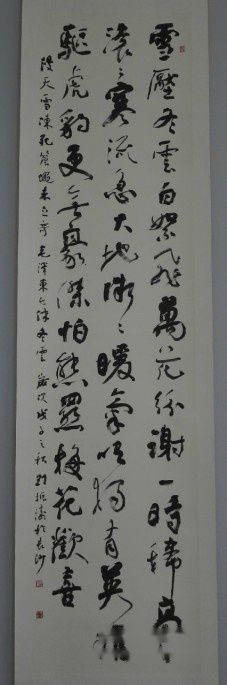 雪壓冬雲白絮飛萬花紛謝一時稀高
滚々寒流急大地微々暖氣吹獨有英
驅虎豹更无豪傑怕熊羆梅花歡喜
漫天雪凍死蒼蠅未足奇 毛澤東七律冬雲 歲次戊子之秋劉振濤於長沙